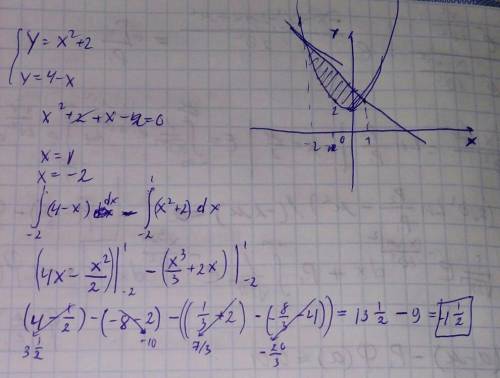 y = x² + 2
y = 4 - x
x² + 2 + x - 4 = 0
x = 1
x = -2
∫₋₂¹ (4 - x) dx - ∫₋₂¹ (x² + 2) dx
(4x - x²/2)|₋₂¹ - (x³/3 + 2x)|₋₂¹
(4 - 1/2) - (-8 - 2) - ((1/3 + 2) - (-8/3 - 4)) = 13 1/2 - 9 = 4 1/2
3 1/2 -10 7/3 -20/3
y
2
-2 0 1 x